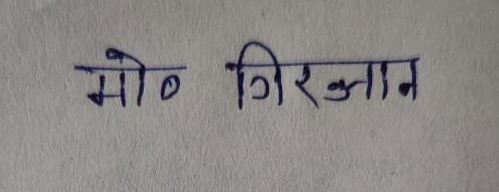 मो० गिरआन